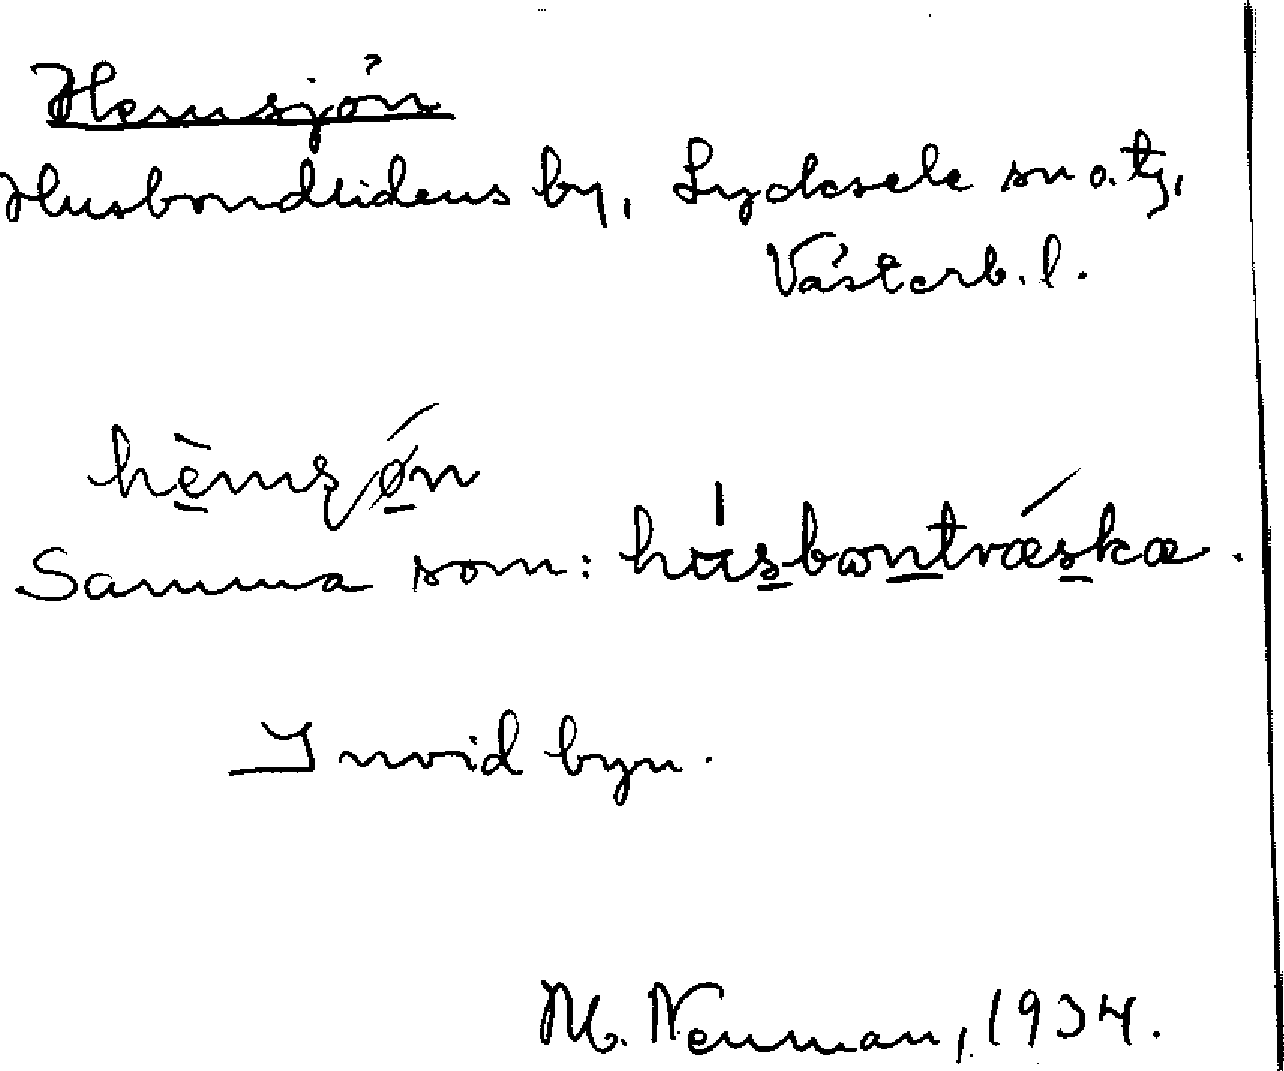 Hemsjön
Husbondlidens by, Lycksele sn o. tg,
Västerb. l.
hèmsjø̀n
Samma som: húsbontræska.
Invid byn.
M. Neuman, 1934.